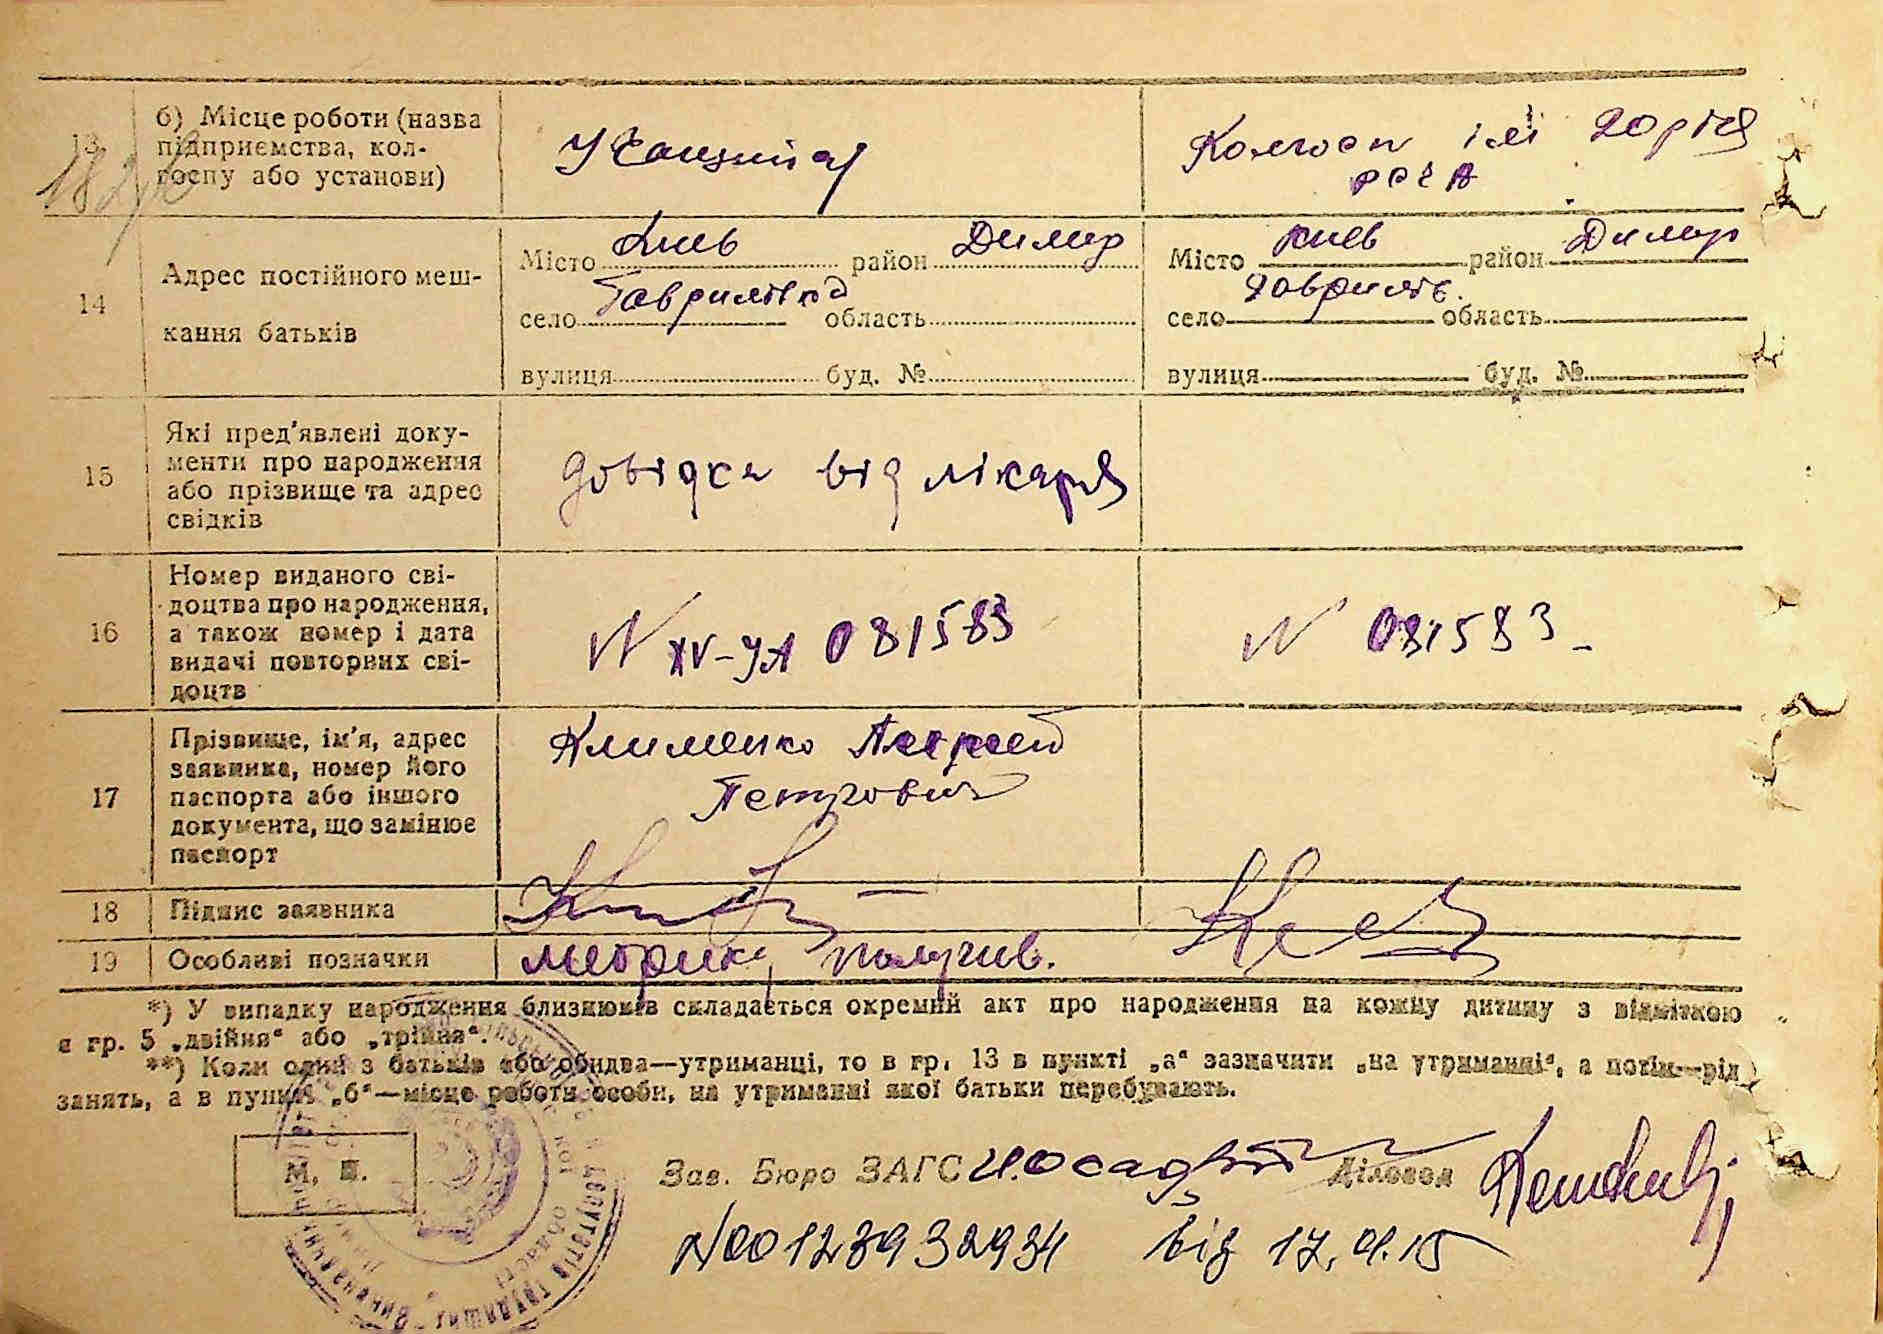 13 б) Місце роботи (назва підприємства, колгоспу або установи) Колгосп ім 20 річя РСЧА
182
14 Адрес постійного мешкання батьків
Місто Київ район Димер Місто Київ район Димер
село Гаврилівка область село Гаврилів. область
вулиця буд. № вулиця буд. №
15 Які пред'явлені документи про народження або прізвище та адрес свідків довідка від лікаря
16 Номер виданого свідоцтва про народження, а також номер і дата видачі повторних свідоцтв N XV-УА 081583 N 081583 -
17 Прізвище, ім'я, адрес заявника, номер його паспорта або іншого документа, що замінює паспорт Клименко Андрей Петрович
18 Підпис заявника
19 Особливі позначки метрику получив.
*) У випадку народження близнюків складається окремий акт про народження на кожну дитину з відміткою
в гр. 5 „двійня“ або „трійня“.
**) Коли один з батьків або обидва—утриманці, то в гр. 13 в пункті „а“ зазначити „на утриманні“, а потім—рід
занять, а в пункті „б“—місце роботи особи, на утриманні якої батьки перебувають.
М. П. Зав. Бюро ЗАГС Діловод
N00128932934 від 12.01.15
депутатів трудящих
області